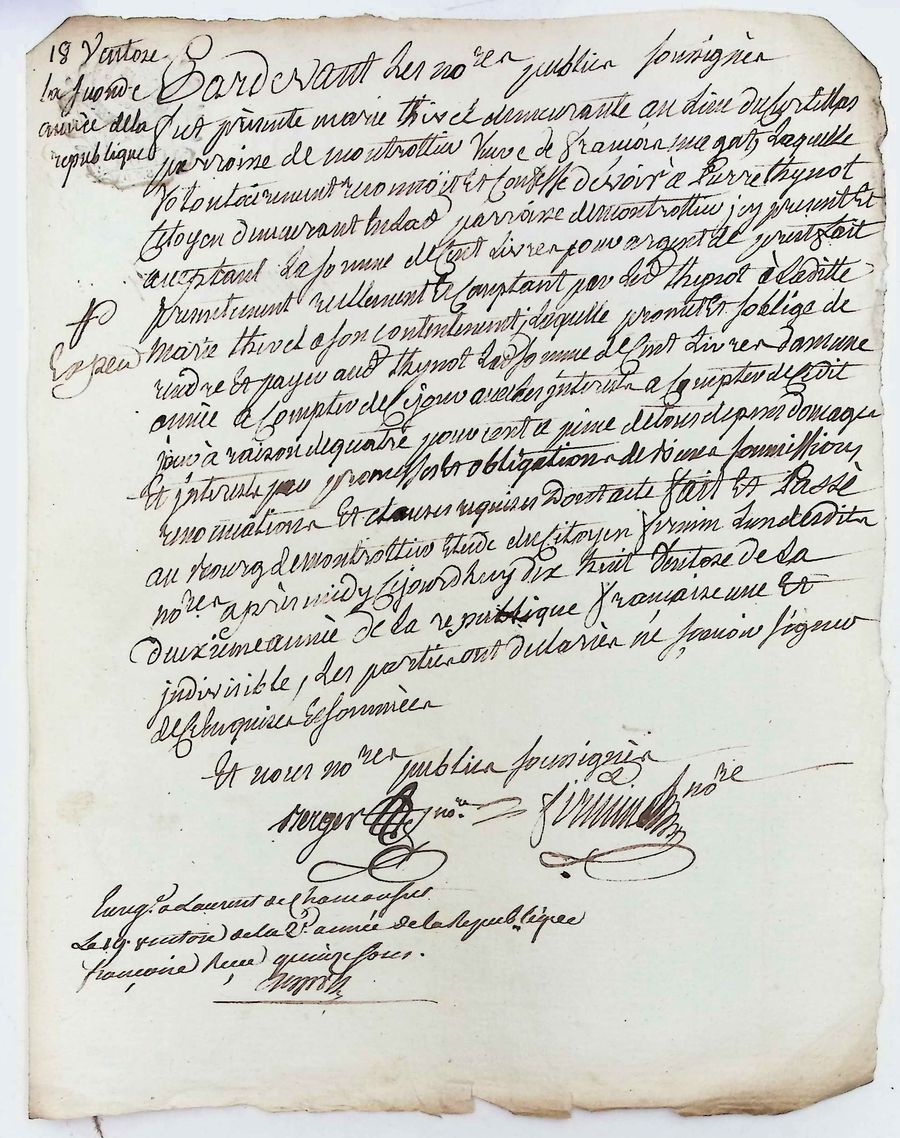 18 Ventose
la seconde
année de la
republique
Pardevant Les no.res publics soussignés
fut présente marie thivel demeurante au lieu du
parroisse de montrottier Veuve de françois magat, Laquelle
Volontairement reconnoit et Confesse devoir a Pierre thynot
Citoyen demeurant parroisse de montrottier jcy présent Et
acceptant La somme de Cent Livres pour argent de prest fait
presentement reellement & Comptant par Led. thynot à Laditte
marie thivel a son contentement, Laquelle promet et soblige de
rendre Et payer aud. thynot Lad. somme de Cent Livres dans une
année a Compter de Ce jour avec Les jnterets a Compter de Cedit
jour à raison de quatre pour cent a peine de tous depens domages
Et jnterets par promesses et obligations de Biens soumissions
renonciations Et clauses requises Dont acte fait Et Passé
au Bourg de montrottier Etude du Citoyen firmin Lun desdits
no.res après midy Cejourdhuy dix huit Ventose de La
Deuxieme année de La republique françaisse une Et
jndivisible, Les parties ont declarées ne sçavoir signer
de Ce Enquises Et sommées
Expedié
Et nous no.res publics soussignés
Berger no.re firmin no.re
Enreg.é a Laurent de Chamousset
Le 19 ventose de la 2.e année de la Republique
françoise Reçu quinze sous.